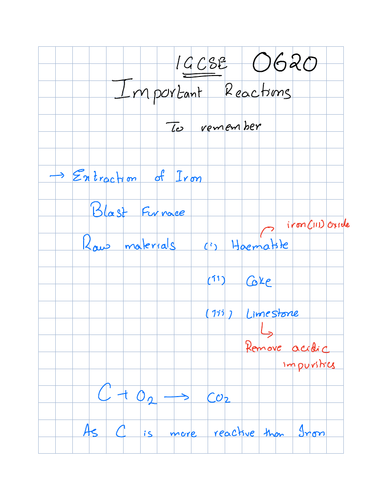 IGCSE 0620
Important Reactions
To remember
→ Extraction of Iron
Blast Furnace
iron(III) oxide
Raw materials (i) Haematite
(ii) Coke
(iii) Limestone
Remove acidic
impurities
C + O₂ → CO₂
As C is more reactive than Iron